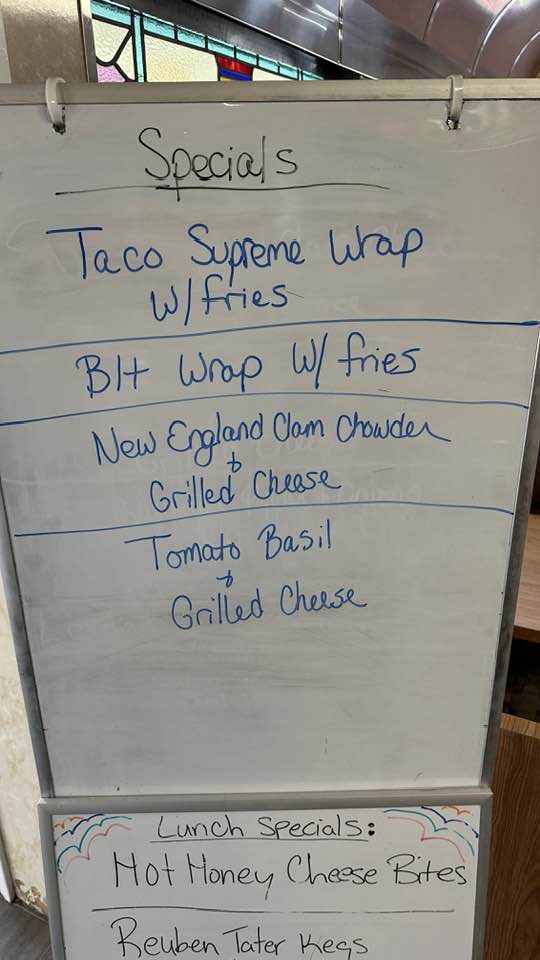 Specials
Taco Supreme Wrap
W/fries
Blt Wrap W/ fries
New England Clam Chowder
&
Grilled Cheese
Tomato Basil
&
Grilled Cheese
Lunch Specials:
Hot Honey Cheese Bites
Reuben Tater Kegs